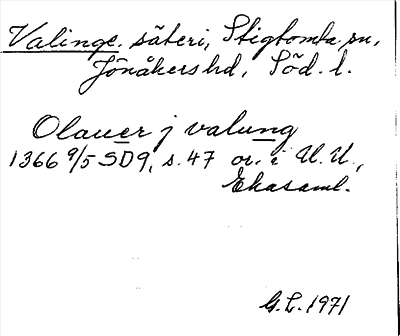 Valinge. säteri, Stigtomta sn,
Jönåkers hd, Söd. l.
Olauer j valung
1366 9/5 SD9, s. 47 or. i U.U.,
Ekasaml.
G.L. 1971